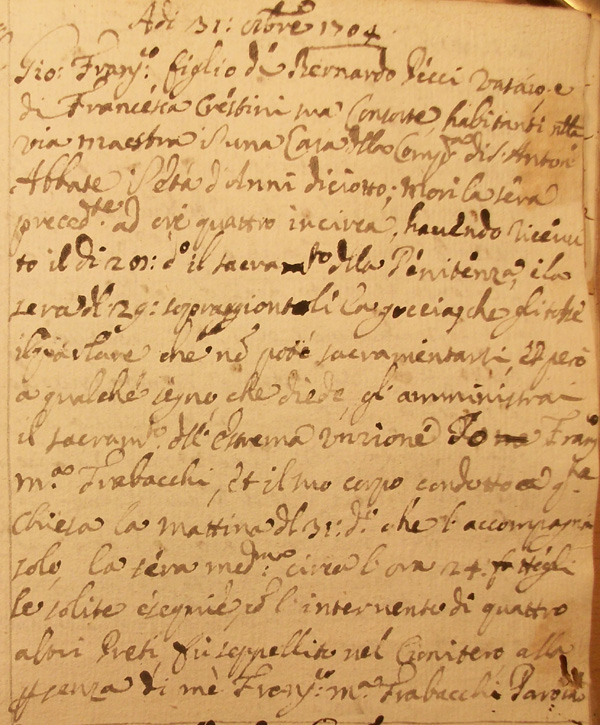 Adi 31: ottbre 1704
Gio: Frans.co figlio di Bernardo Picci vasaio, e
di Francesca Crestini sua Consorte, habitanti nella
via maestra i una Casa della Comp.a di S. Antoni
Abbate i età d'Anni diciotto; Mori la sera
preced.te ad ore quattro in circa, havendo ricevu
to il di 20: d.o il sacram.to della Penitenza, e la
sera dl 29: sopraggiontoli la goccia, che gli tolse
il parlare che nō potè sacramentarsi, et però
a qualche segno che diede, gl'amministrai
il sacram.to dell'estrema unzione Io Frans.co
m.a Trabacchi, et il suo corpo condotto a q.sta
Chiesa la mattina dl 31: d.o che l'accompagnai
solo, la sera med.ma circa l'ora 24. fattegli
le solite esequie, cō l'intervento di quattro
altri Preti fu seppellito nel Cimitero alla
presenza di me Frans.co m.a Trabacchi Paro